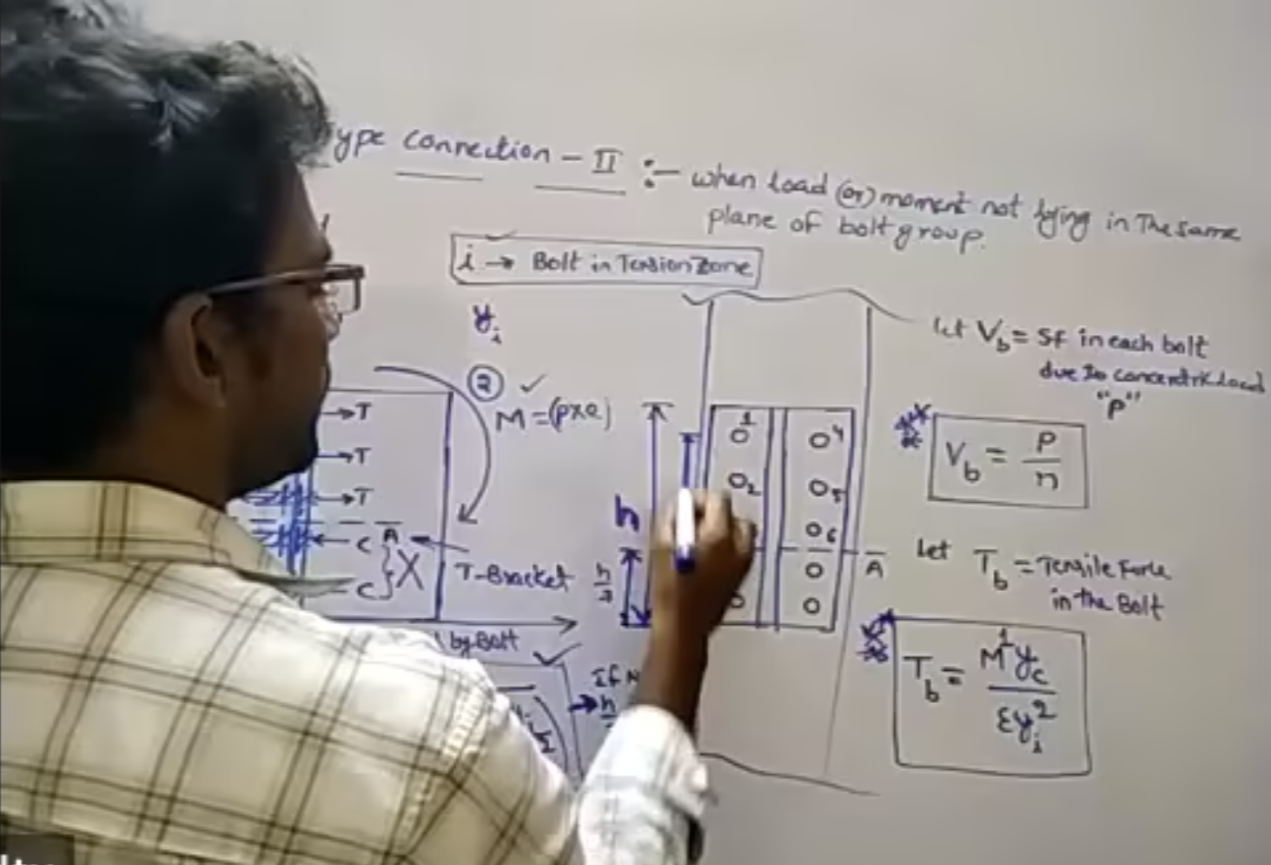 ype connection - II :- when load (or) moment not lying in the same
plane of bolt group.
i → Bolt in Tension Zone
y_i
② ✓
M = (P×e)
→T
→T
→T
←C A
←C } X
T-Bracket
by Bolt
If N
→ h
h
h/7
o1 o4
o2 o5
o6
o
o o
A
let V_b = SF in each bolt
due to concentric load
"P"
V_b = P/n
Let T_b = Tensile Force
in the Bolt
T_b = M^1 y_c / Σy_i^2